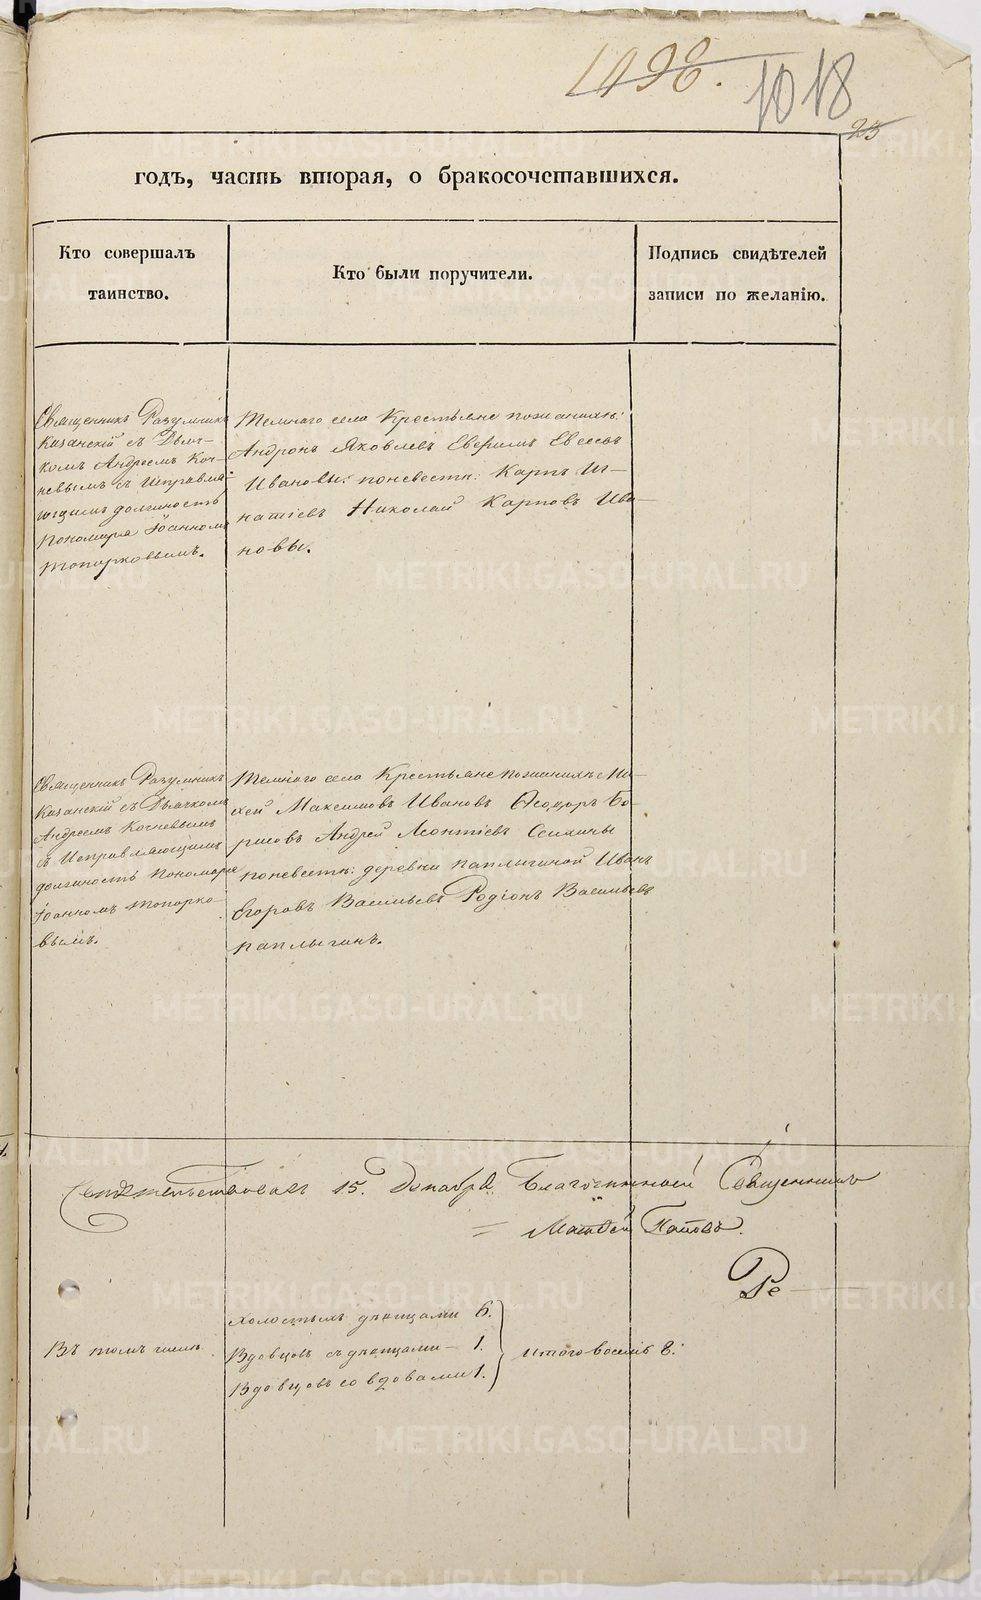 1498.
1018
25
годъ, часть вторая, о бракосочетавшихся.
Кто совершалъ
таинство.
Кто были поручители.
Подпись свидѣтелей
записи по желанію.
Священникъ Разумникъ
Казанскій съ Дьяч-
комъ Андреемъ Коч-
невымъ съ Исправля-
ющимъ должность
Пономаря Іоанномъ
Топорковымъ.
Темнаго села Крестьяне по женихѣ:
Андронъ Яковлевъ Еверимъ Евсевь
Ивановы: по невестѣ: Карпъ Иг-
натіевъ Николай Карповъ Ива-
новы.
Священникъ Разумникъ
Казанскій съ Дьячкомъ
Андреемъ Кочневымъ
съ Исправляющимъ
должность Пономаря
Іоанномъ Топорко-
вымъ.
Темнаго села Крестьяне по женихѣ Мо-
кей Максимовъ Ивановъ Ѳеодоръ Бо-
рисовъ Андрей Леонтіевъ
по невестѣ: деревни Паплыгиной Иванъ
Егоровъ Васильевъ Родіонъ Васильевъ
Паплыгинъ.
Свидѣтельствовалъ 15. Декабря Благочинный Священникъ
= Матвей Поповъ.
Ре
Въ томъ числѣ
Холостыхъ съ девицами 6.
Вдовцовъ съ девицами – 1.
Вдовцовъ со вдовами 1.
итого восемь 8.
METRIKI.GASO-URAL.RU